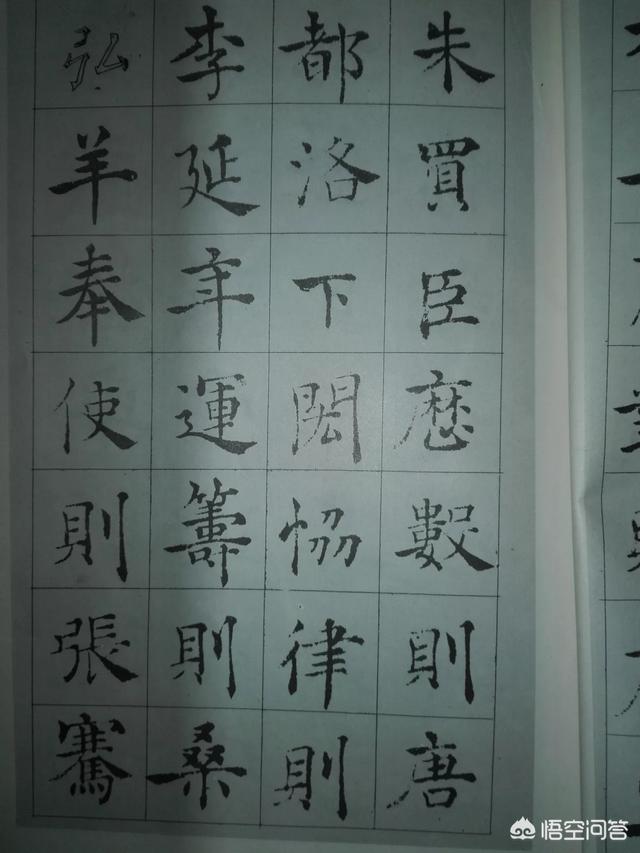 朱買臣歷數則唐
都洛下閎恊律則
李延年運籌則桑
弘羊奉使則張騫
悟空问答